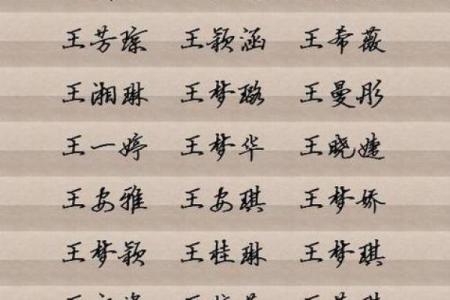 王芳琮 王颖涵 王希薇
王湘琳 王梦璐 王曼彤
王一婷 王梦华 王晓婕
王安雅 王安琪 王梦娇
王梦颖 王桂琳 王梦琪